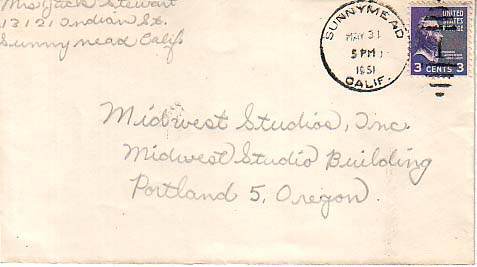 Mrs Jack Stewart
13121 Indian St.
Sunnymead Calif
SUNNYMEAD
MAY 31
5 PM
1951
CALIF.
UNITED
STATES
3 CENTS 3
Midwest Studios, Inc.
Midwest Studio Building
Portland 5, Oregon.